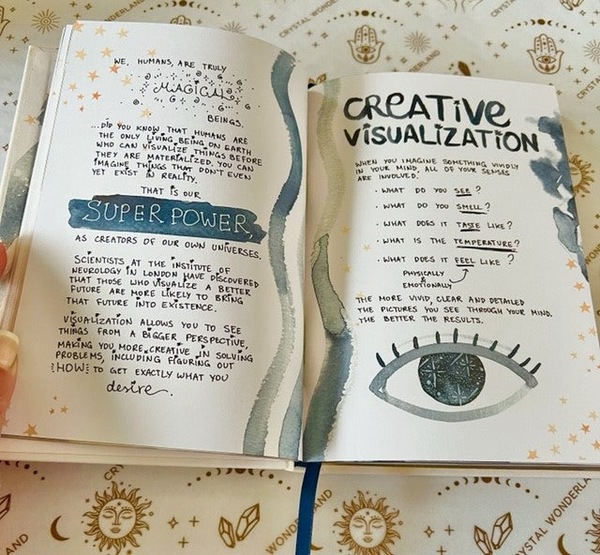 WE, HUMANS, ARE TRULY
MAGICAL
BEINGS.
...DID YOU KNOW THAT HUMANS ARE
THE ONLY LIVING BEING ON EARTH
WHO CAN VISUALIZE THINGS BEFORE
THEY ARE MATERIALIZED. YOU CAN
IMAGINE THINGS THAT DON'T EVEN
YET EXIST IN REALITY.
THAT IS OUR
SUPER POWER,
AS CREATORS OF OUR OWN UNIVERSES.
SCIENTISTS AT THE INSTITUTE OF
NEUROLOGY IN LONDON HAVE DISCOVERED
THAT THOSE WHO VISUALIZE A BETTER
FUTURE ARE MORE LIKELY TO BRING
THAT FUTURE INTO EXISTENCE.
VISUALIZATION ALLOWS YOU TO SEE
THINGS FROM A BIGGER PERSPECTIVE,
MAKING YOU MORE CREATIVE IN SOLVING
PROBLEMS, INCLUDING FIGURING OUT
HOW TO GET EXACTLY WHAT YOU
desire.
CREATIVE
VISUALIZATION
WHEN YOU IMAGINE SOMETHING VIVIDLY
IN YOUR MIND, ALL OF YOUR SENSES
ARE INVOLVED.
• WHAT DO YOU SEE?
• WHAT DO YOU SMELL?
• WHAT DOES IT TASTE LIKE?
• WHAT IS THE TEMPERATURE?
• WHAT DOES IT FEEL LIKE?
PHYSICALLY
&
EMOTIONALLY
THE MORE VIVID, CLEAR AND DETAILED
THE PICTURES YOU SEE THROUGH YOUR MIND,
THE BETTER THE RESULTS.
CRYSTAL WONDERLAND
CRYSTAL WONDERLAND